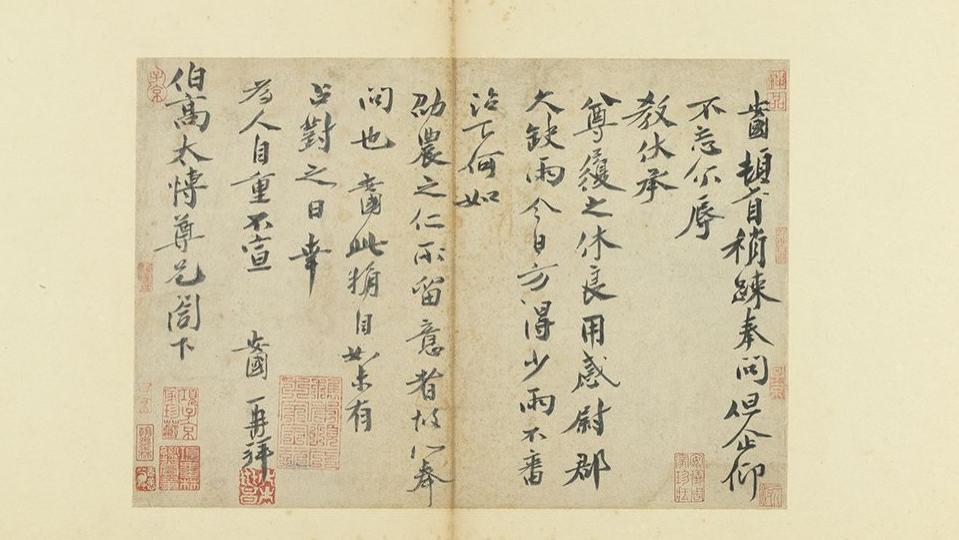 頓首稍疎奉問但企仰
不忘忽辱
教伏承
尊履之休良用感尉郡
大缺雨今日方得少雨不審
治下何如
劭農之仁所留意者故以奉
問也此觕自如未有
占對之日幸
為人自重不宣
再拜
伯高太博尊兄閤下